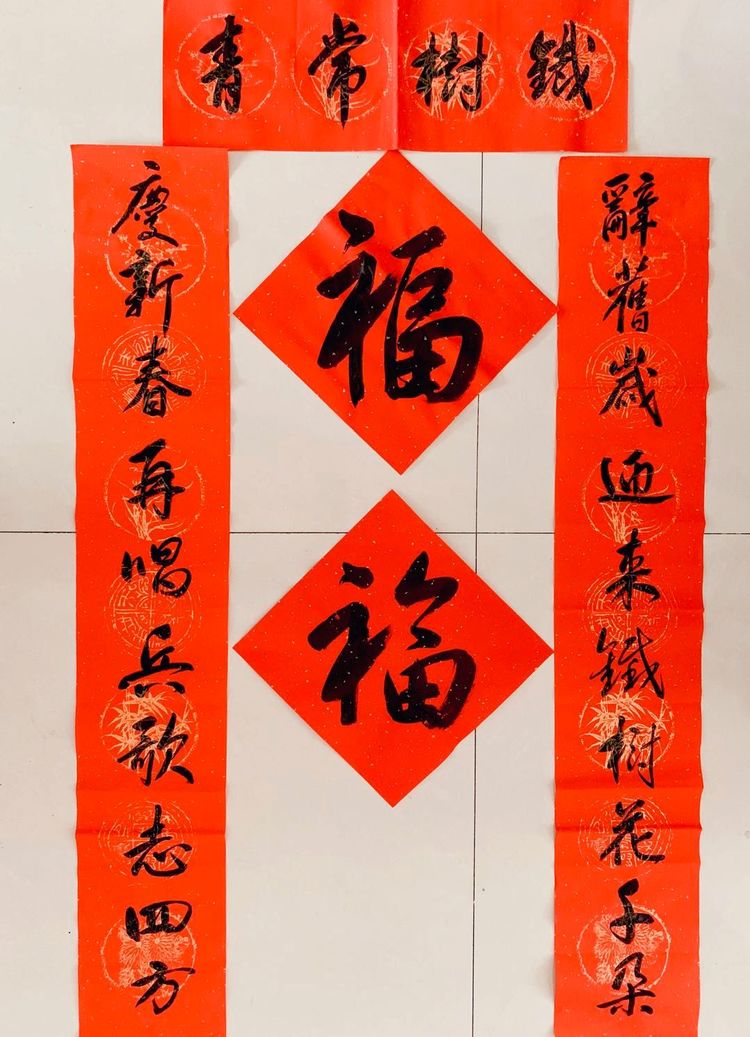 鐵樹常青
辭舊歲迎来鐵樹花千朵
慶新春再唱兵歌志四方
福
福